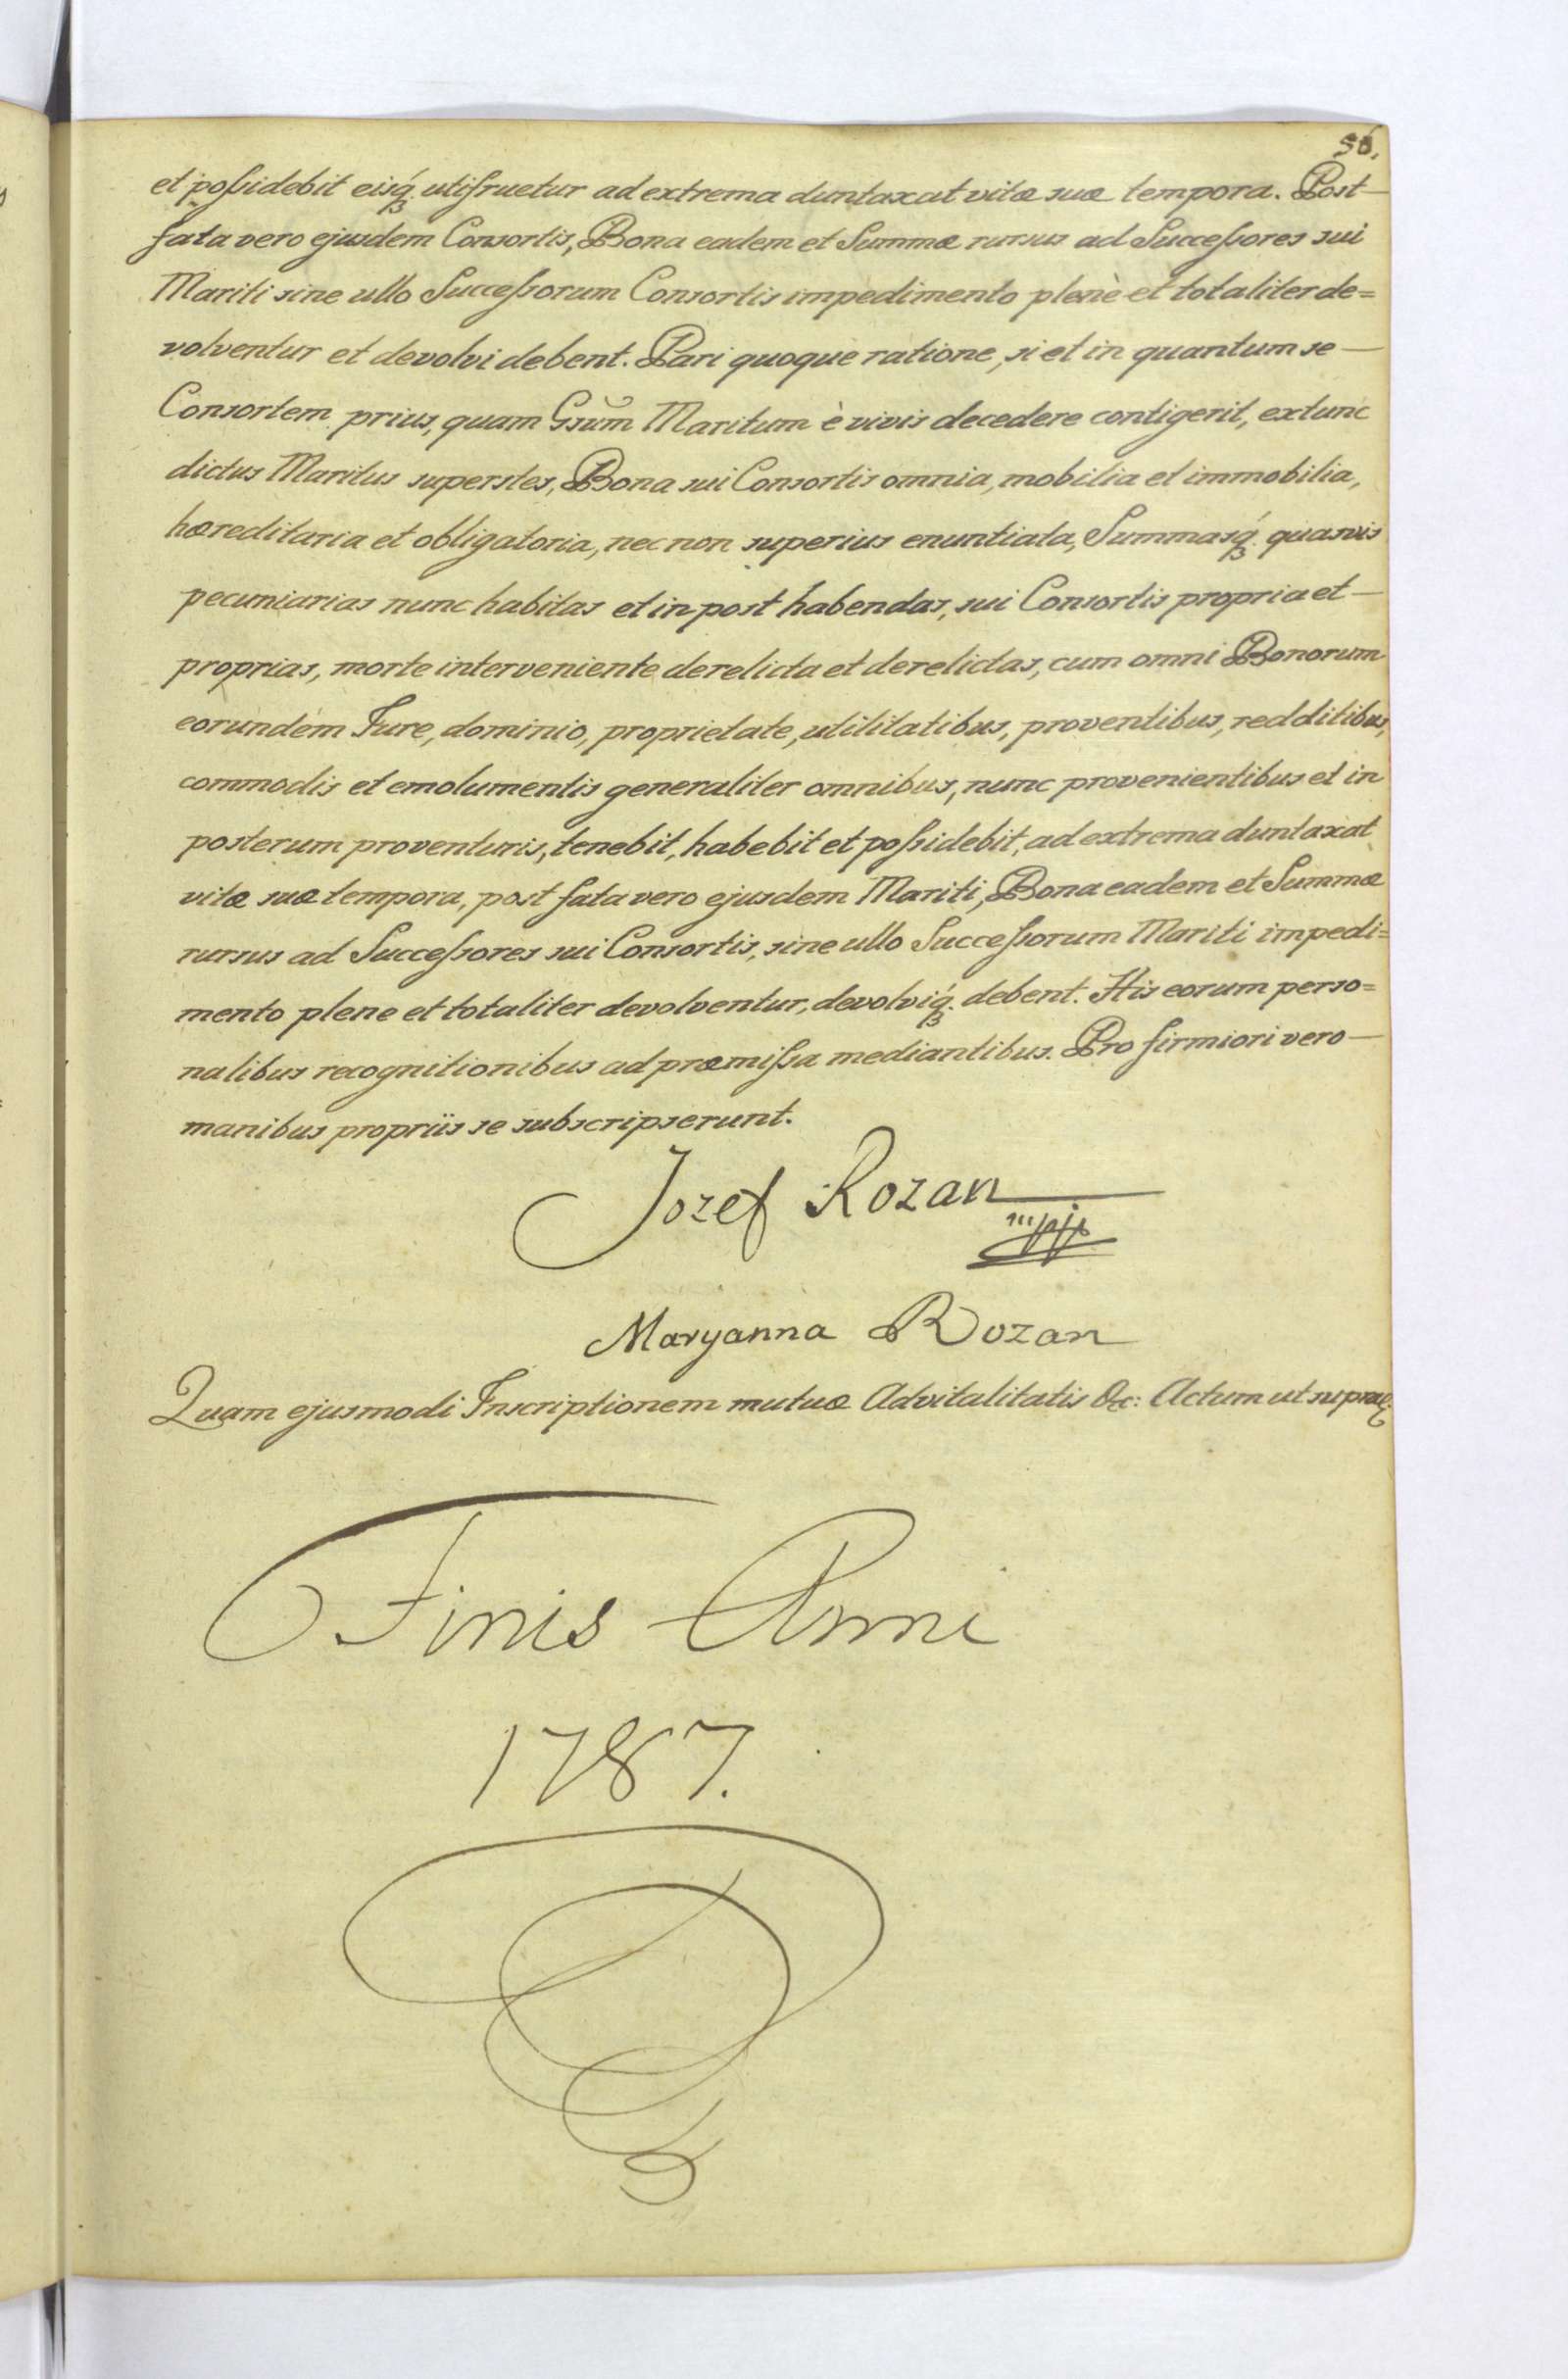 56.
et possidebit eisq́ utifruetur ad extrema duntaxat vitæ suæ tempora. Post—
fata vero ejusdem Consortis, Bona eadem et Summæ rursus ad Successores sui
Mariti sine ullo Successorum Consortis impedimento plenè et totaliter de=
volventur et devolvi debent. Pari quoque ratione, si et in quantum se—
Consortem prius, quam Gsũm Maritum è vivis decedere contigerit, extunc
dictus Maritus superstes, Bona sui Consortis omnia, mobilia et immobilia,
hæreditaria et obligatoria, nec non superius enuntiata, Summasq́ quasvis
pecuniarias nunc habitas et in post habendas, sui Consortis propria et—
proprias, morte interveniente derelicta et derelictas, cum omni Bonorum
eorundem Jure, dominio, proprietate, utilitatibus, proventibus, redditibus,
commodis et emolumentis generaliter omnibus, nunc provenientibus et in
posterum proventuris, tenebit, habebit et possidebit, ad extrema duntaxat
vitæ suæ tempora, post fata vero ejusdem Mariti, Bona eadem et Summæ
rursus ad Successores sui Consortis, sine ullo Successorum Mariti impedi=
mento plene et totaliter devolventur, devolviq́ debent. His eorum perso=
nalibus recognitionibus ad præmissa mediantibus. Pro firmiori vero—
manibus propriis se subscripserunt.
Jozef Rozan
mpp
Maryanna Rozan
Quam ejusmodi Inscriptionem mutuæ Advitalitatis &c: Actum ut supra
Finis Anni
1787.